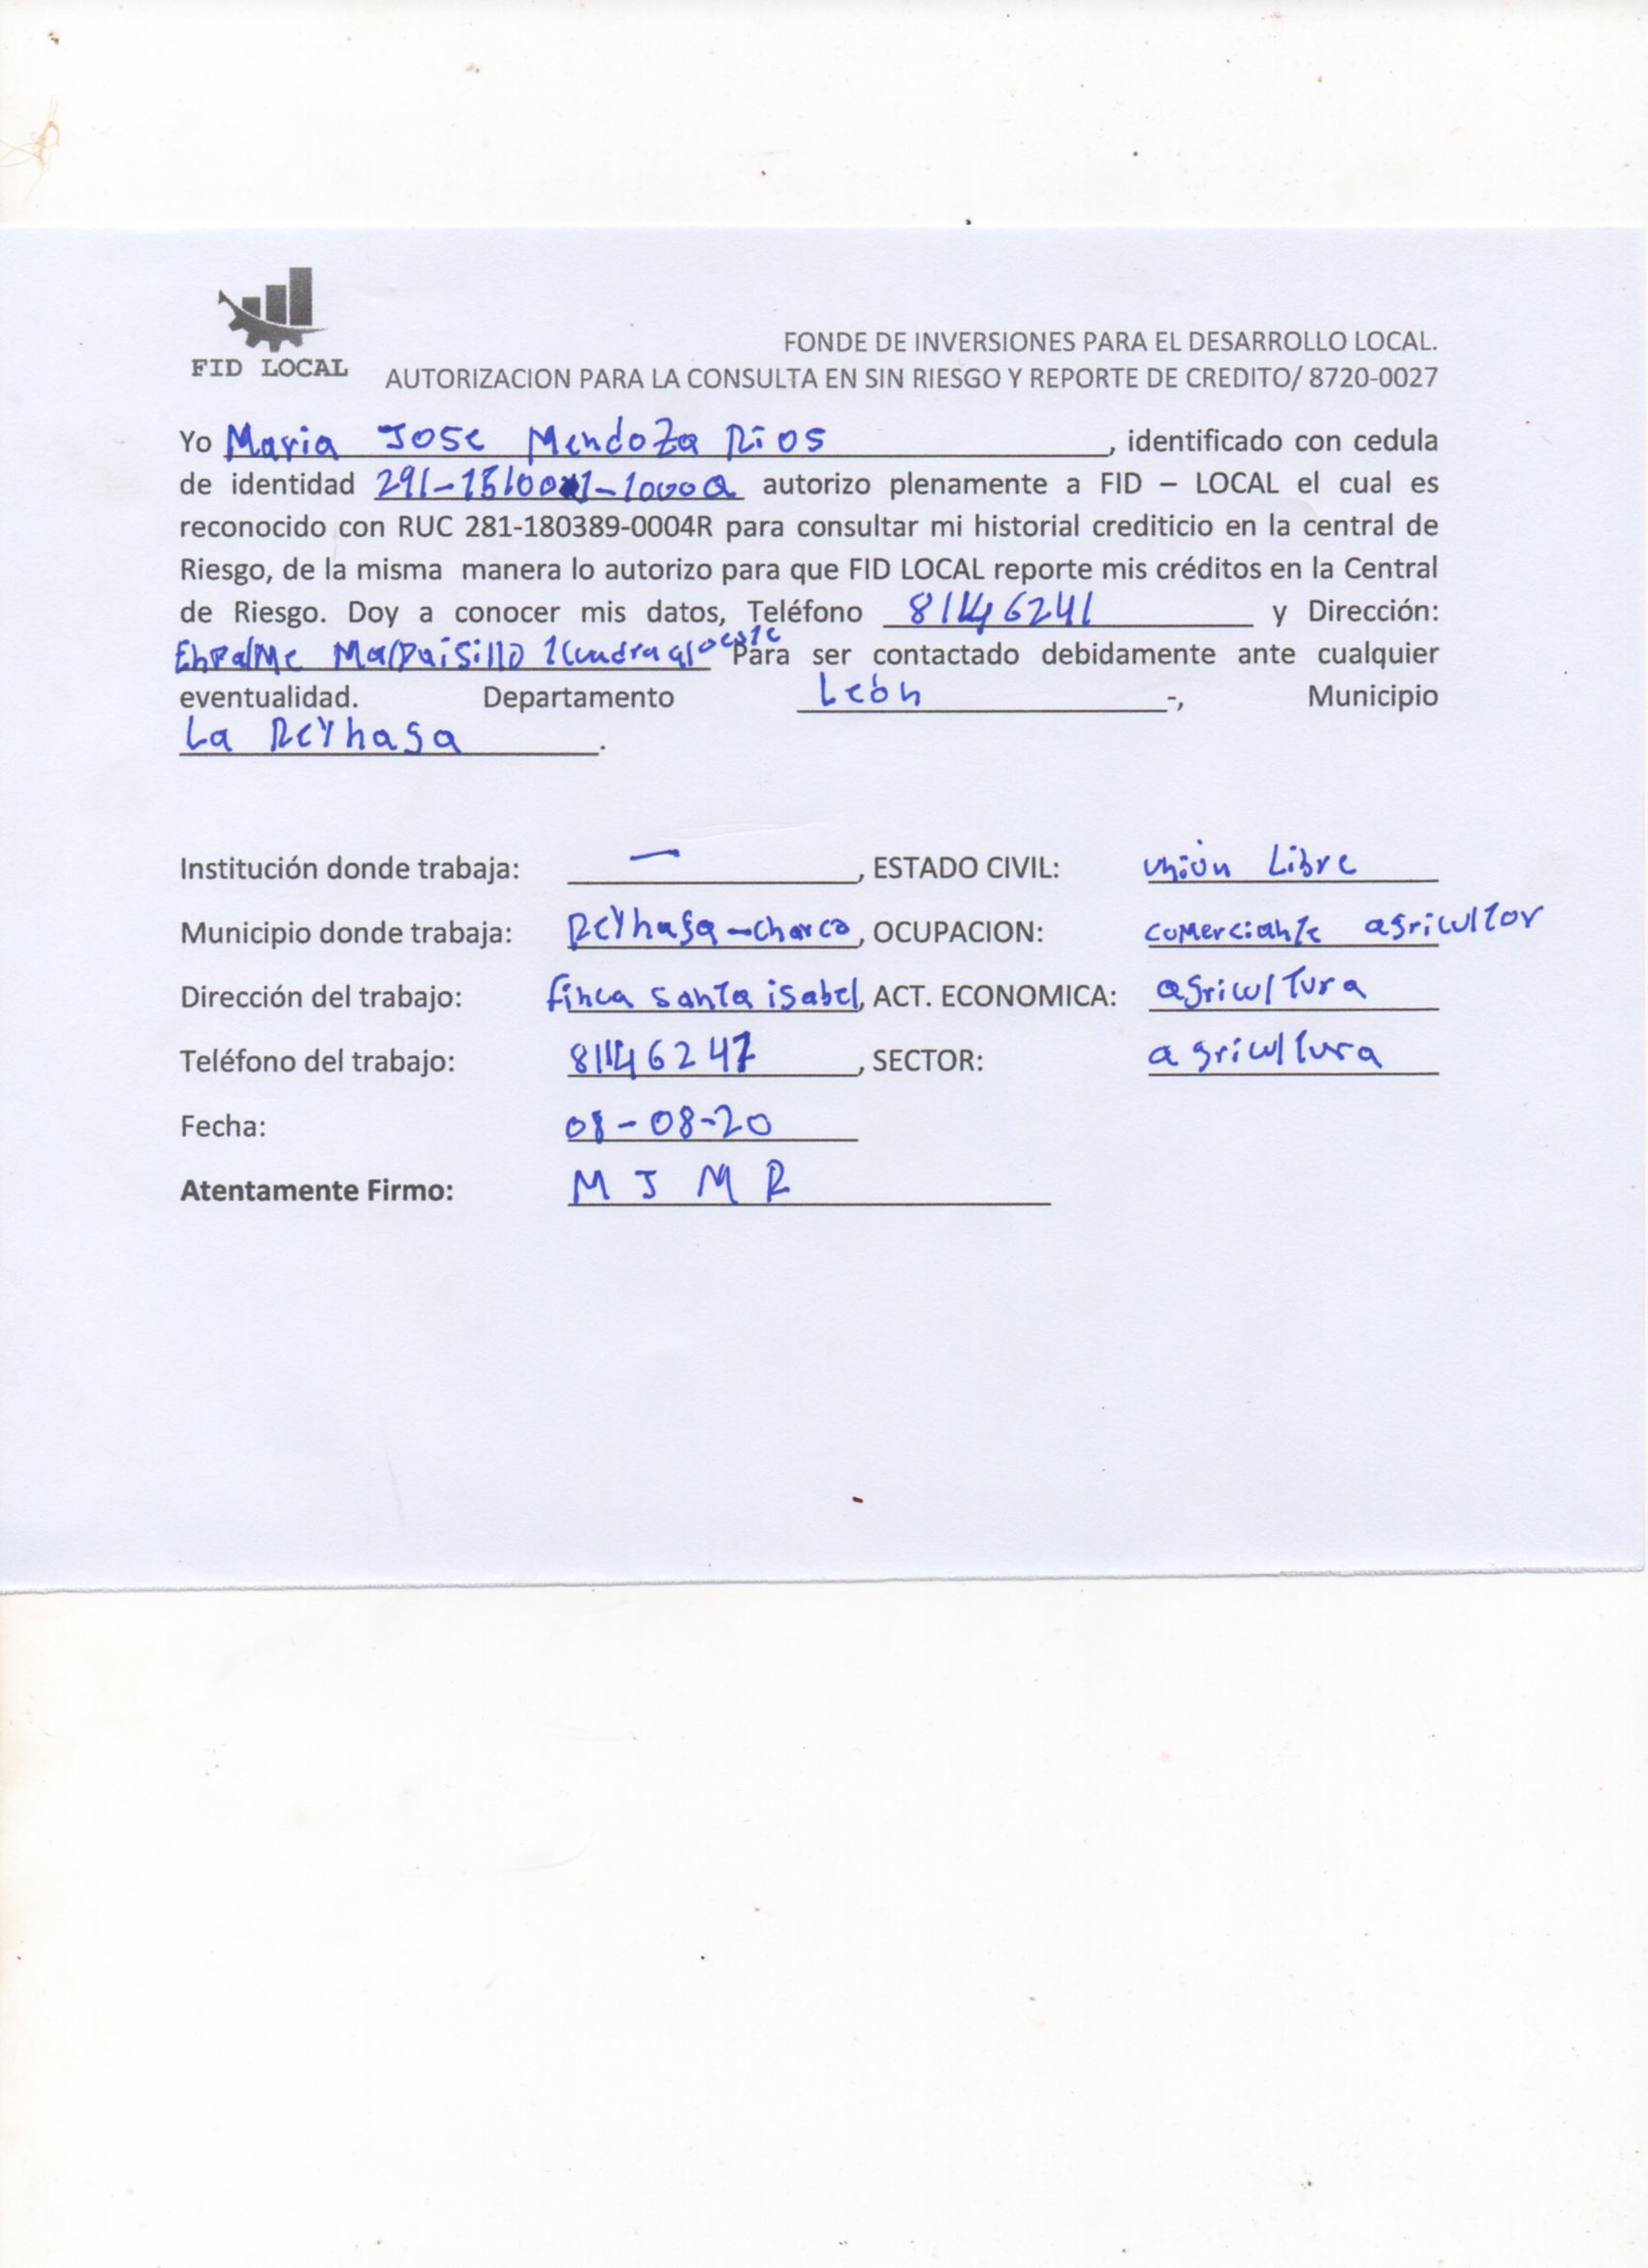 FID LOCAL
FONDE DE INVERSIONES PARA EL DESARROLLO LOCAL.
AUTORIZACION PARA LA CONSULTA EN SIN RIESGO Y REPORTE DE CREDITO/ 8720-0027
Yo Maria Jose Mendoza Rios, identificado con cedula
de identidad autorizo plenamente a FID – LOCAL el cual es
reconocido con RUC 281-180389-0004R para consultar mi historial crediticio en la central de
Riesgo, de la misma manera lo autorizo para que FID LOCAL reporte mis créditos en la Central
de Riesgo. Doy a conocer mis datos, Teléfono 81146241 y Dirección:
Empalme Malpaisillo 1 cuadra al oeste Para ser contactado debidamente ante cualquier
eventualidad. Departamento León -, Municipio
La Reynaga.
Institución donde trabaja: —, ESTADO CIVIL: unión Libre
Municipio donde trabaja: Reynaga - charco, OCUPACION: comerciante agricultor
Dirección del trabajo: finca santa isabel, ACT. ECONOMICA: agricultura
Teléfono del trabajo: 81146247, SECTOR: agricultura
Fecha: 08-08-20
Atentamente Firmo: M J M R